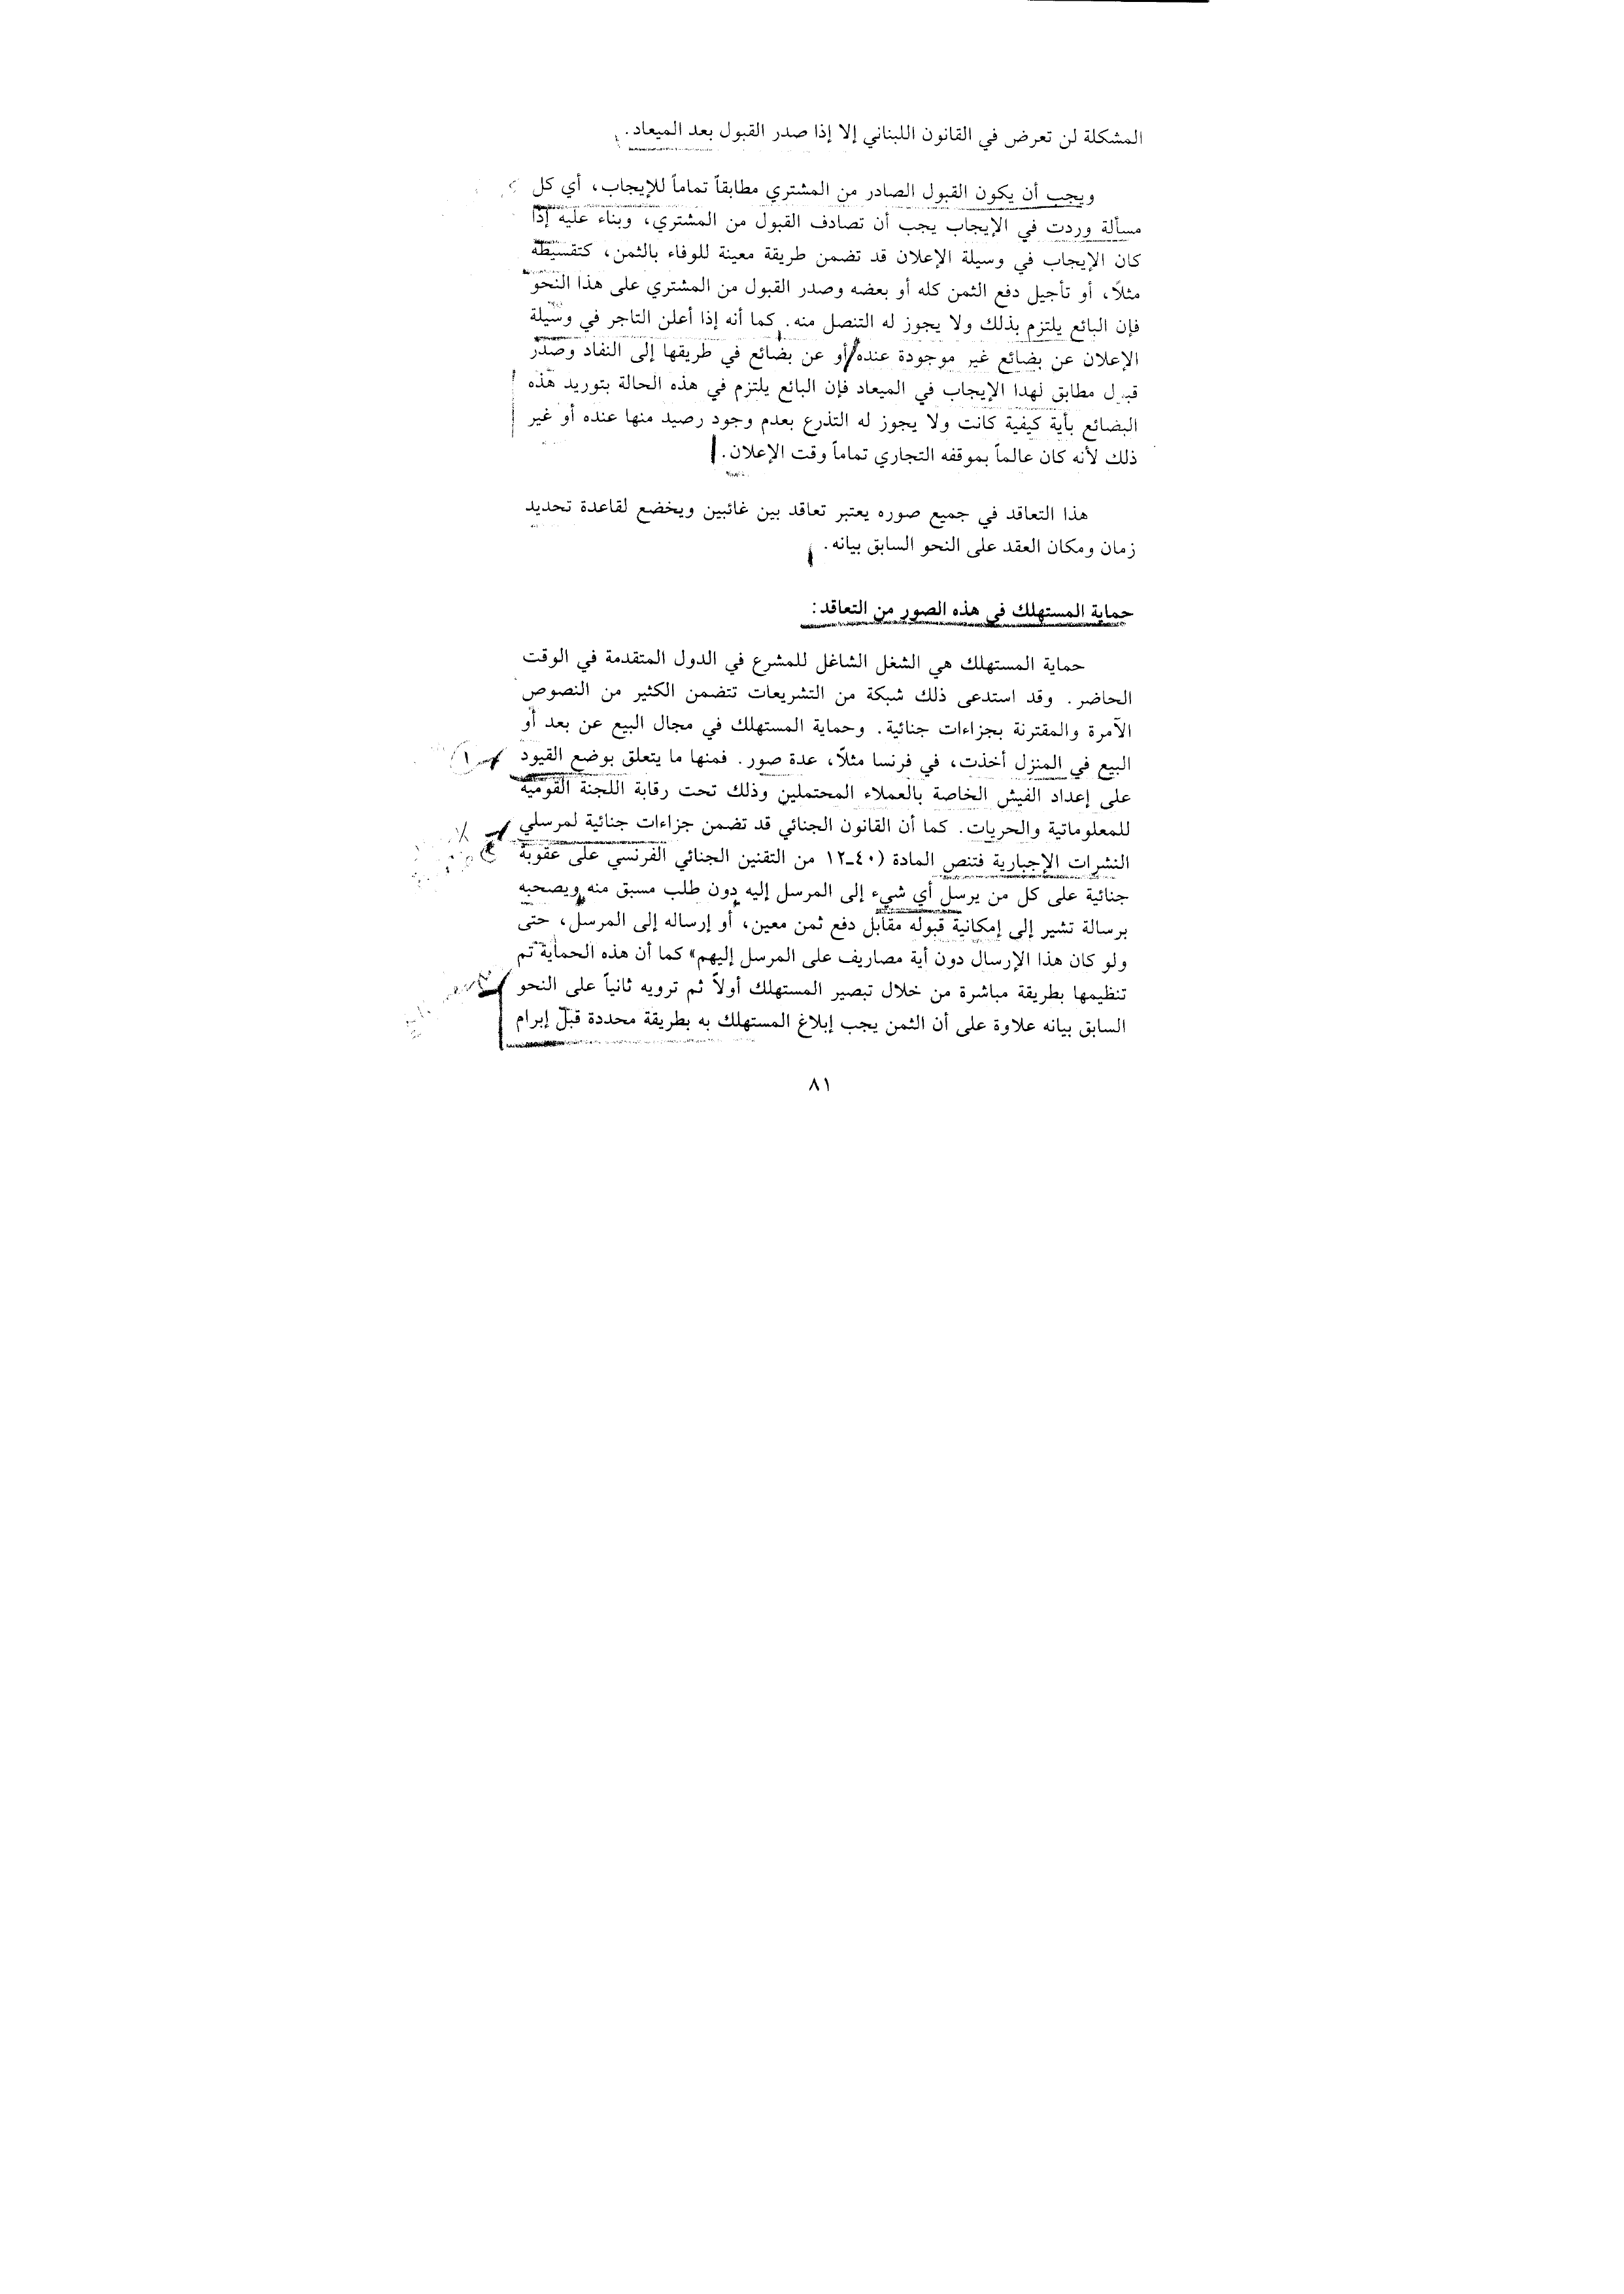 المشكلة لن تعرض في القانون اللبناني إلا إذا صدر القبول بعد الميعاد.
ويجب أن يكون القبول الصادر من المشتري مطابقاً تماماً للإيجاب، أي كل
مسألة وردت في الإيجاب يجب أن تصادف القبول من المشتري، وبناء عليه إذا
كان الإيجاب في وسيلة الإعلان قد تضمن طريقة معينة للوفاء بالثمن، كتقسيطه
مثلاً، أو تأجيل دفع الثمن كله أو بعضه وصدر القبول من المشتري على هذا النحو
فإن البائع يلتزم بذلك ولا يجوز له التنصل منه. كما أنه إذا أعلن التاجر في وسيلة
الإعلان عن بضائع غير موجودة عنده أو عن بضائع في طريقها إلى النفاد وصدر
قبول مطابق لهذا الإيجاب في الميعاد فإن البائع يلتزم في هذه الحالة بتوريد هذه
البضائع بأية كيفية كانت ولا يجوز له التذرع بعدم وجود رصيد منها عنده أو غير
ذلك لأنه كان عالماً بموقفه التجاري تماماً وقت الإعلان.
هذا التعاقد في جميع صوره يعتبر تعاقد بين غائبين ويخضع لقاعدة تحديد
زمان ومكان العقد على النحو السابق بيانه.
حماية المستهلك في هذه الصور من التعاقد:
حماية المستهلك هي الشغل الشاغل للمشرع في الدول المتقدمة في الوقت
الحاضر. وقد استدعى ذلك شبكة من التشريعات تتضمن الكثير من النصوص
الآمرة والمقترنة بجزاءات جنائية. وحماية المستهلك في مجال البيع عن بعد أو
البيع في المنزل أخذت، في فرنسا مثلاً، عدة صور. فمنها ما يتعلق بوضع القيود
على إعداد الفيش الخاصة بالعملاء المحتملين وذلك تحت رقابة اللجنة القومية
للمعلوماتية والحريات. كما أن القانون الجنائي قد تضمن جزاءات جنائية لمرسلي
النشرات الإجبارية فتنص المادة (٤٠ـ١٢ من التقنين الجنائي الفرنسي على عقوبة
جنائية على كل من يرسل أي شيء إلى المرسل إليه دون طلب مسبق منه ويصحبه
برسالة تشير إلى إمكانية قبوله مقابل دفع ثمن معين، أو إرساله إلى المرسل، حتى
ولو كان هذا الإرسال دون أية مصاريف على المرسل إليهم» كما أن هذه الحماية تم
تنظيمها بطريقة مباشرة من خلال تبصير المستهلك أولاً ثم ترويه ثانياً على النحو
السابق بيانه علاوة على أن الثمن يجب إبلاغ المستهلك به بطريقة محددة قبل إبرام
٨١